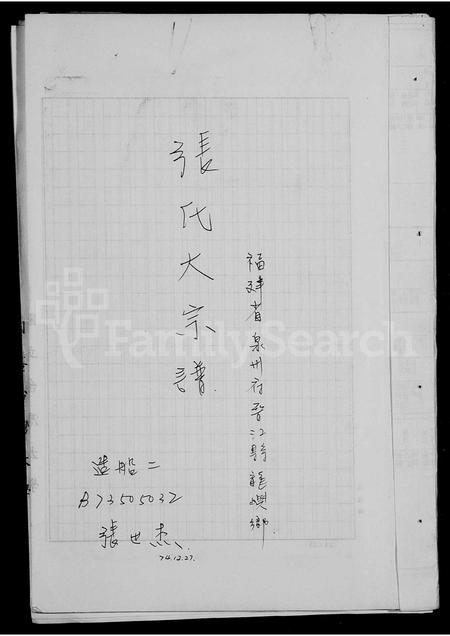 福建省泉州府晉江縣龍鄉
張氏大宗譜
造船二
A73505032
張世杰
74.12.27.
FamilySearch